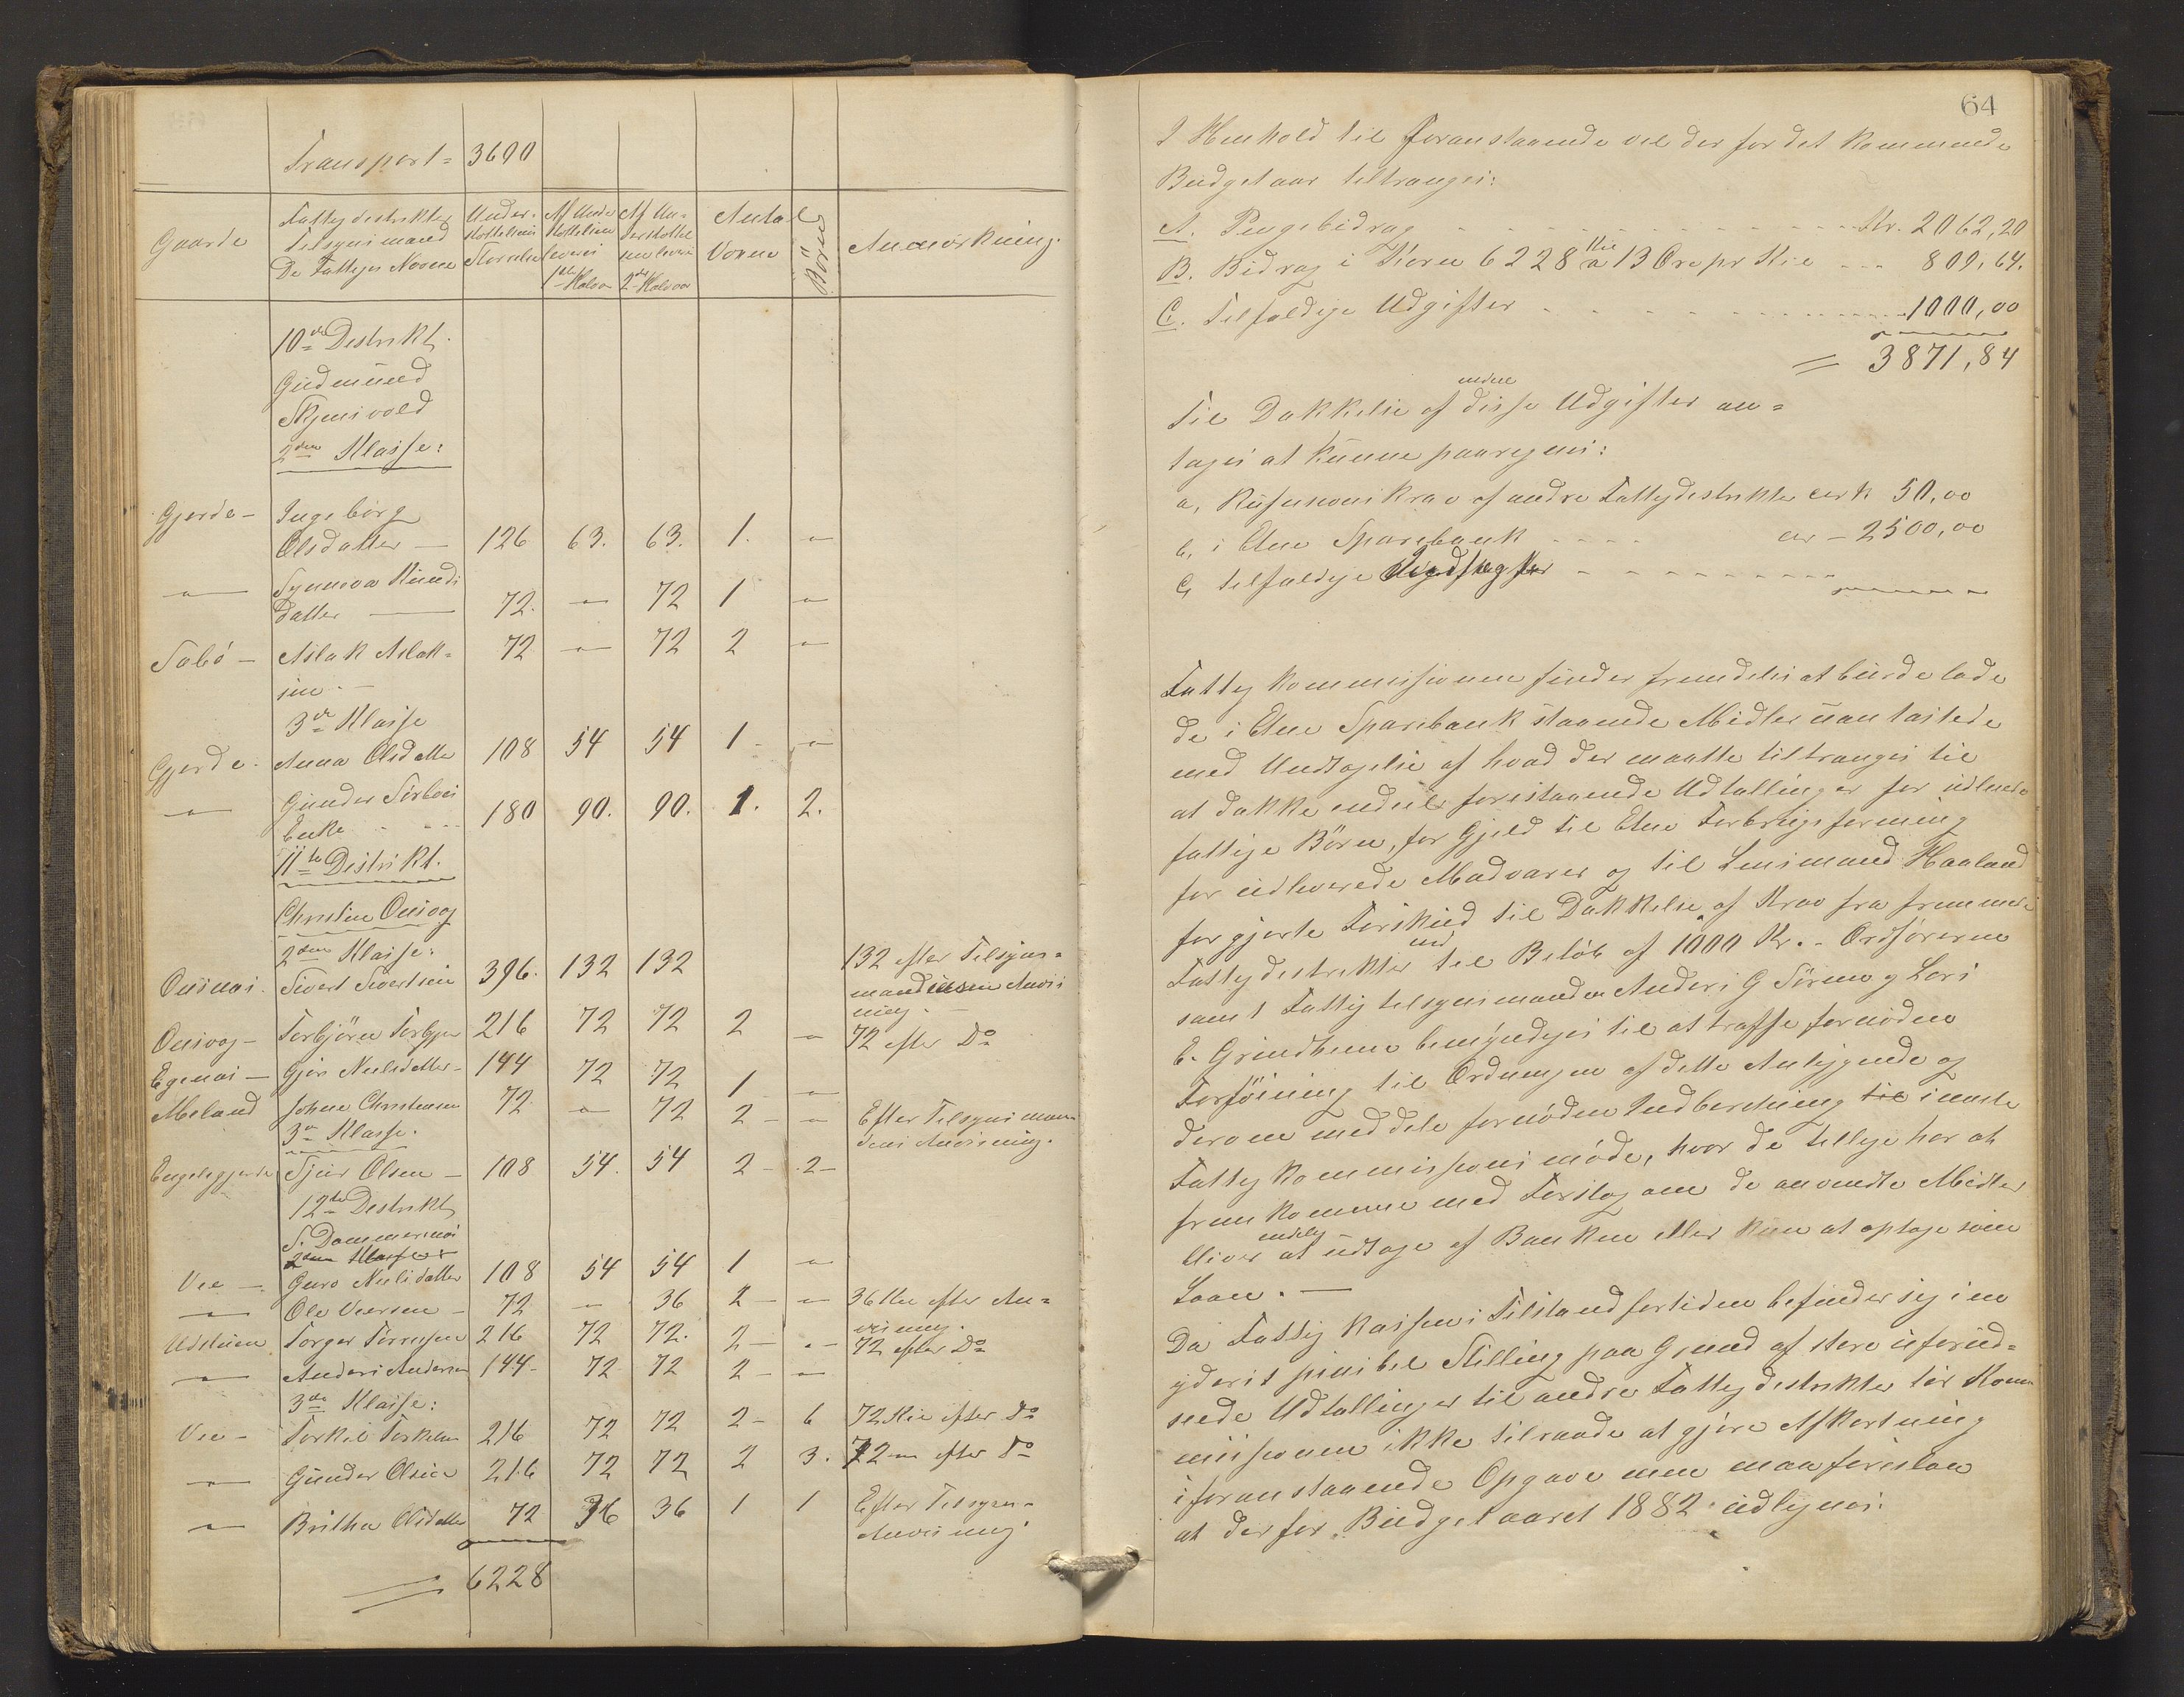 Transport = 3690
Gaarde
Fattigdistrikter
Tilsynsmænd
De Fattiges Navne
Under-
stöttelsens
Störrelse
Af Under
stöttelsen
leveres
1ste Halvaar
Af Un-
derstöttel
sen leveres
2det Halvaar
Antal
Voxne
Börn
Anmærkning.
10de Destrikt.
Gudmund
Skjensvold
2den Klasse:
Gjerde - Ingeborg
Olsdatter - 126 63. 63. 1. -"-
-"- Synneva Knuds
datter - 72. -"- 72 1 -"-
Sæbö - Aslak Aslak=
sen. - 72 -"- 72 2 -"-
3de Klasse
Gjerde. Anna Olsdatter 108 54 54 1 - -"-
-"- Gunder
Enke - - - 180 90. 90. 1. 2.
11te Destrikt.
Christen Osvaag
2den Klasse:
Sivert Sivertsen 396. 132 132 132 efter Tilsyns=
mandens Anvis
ning. -
Osvaag - Torbjörn Torbjør 216 72 72 2 -"- 72 efter Do
Egenæs - Gjøri Nielsdatter - 144 72 72 1 -"-
Meland Johne Christensen 72 -"- 72 2 - -"- Efter Tilsynsman
dens Anvisning.
3de Klasse.
Engelsgjerde Sjur Olsen - 108 54. 54 2 - 2 -
12te Destrikt
S. Dommersnæs
2den Klasse
Vee - Guro Nielsdatter 108 54 54 1 -"-
-"- Ole Veersen - 72 -"- 36 2 - -"- 36 Kr efter An=
visning.
Torger Tørresen 216 72 72. 2 - -"- 72 efter Do
-"- Anders Andersen 144 - 72 72 2 - -"-
3de Klasse:
Vee - Torkel Torkelsen 216 72 72 2 - 6 72 Kr efter Do
-"- Gunder Olsen 216 72 72 2 3. 72 - efter Do
-"- Britha Olsdatter 72 36 36 1 1 Efter Tilsyns=
Anvisning.
= 6228
64
I Henhold til Foranstaaende vil der for det kommende
Budgetaar tiltrænges:
A. Pengebidrag - - - - - Kr. 2062,20
B. Bidrag i Korn 6228 Kr a 13 Øre pr Kr - - - 809,64.
C. Tilfældige Udgifter - - - - - 1000,00
= 3871,84
Til Dækkelse af disse Udgifter an=
tages at kunne paaregnes:
a, Refusionskrav af andre Fattigdestrikter cirk 50,00
b, i Etne Sparebank - - - - cir - 2500,00
c, tilfældige Indtægter - - - - -
Fattigkommissionen finder fremdeles at burde lade
de i Etne Sparebank staaende Midler uantastede
med Undtagelse af hvad der maatte tiltrænges til
at dække endeel forestaaende Udtællinger for
fattige Børn, for Gjeld til Etne Forbrugsforening
for udleverede Madvarer og til Lensmand Haaland
for gjorte Forskud til Dækkelse af Krav fra fremmede
Fattigdestrikter til Beløb af 1000 Kr. - Ordføreren
samt Fattigtilsynsmanden Anders G Sørem og Lars
E. Grindheim bemyndiges til at træffe fornøden
Forføining til Ordningen af dette Anliggende og
derom meddele fornøden Indberetning til i næste
Fattigkommissionsmøde, hvor de tillige har at
fremkomme med Forslag om de anvendte Midler
bliver endelig at udtage af Banken eller kun at optage som
Laan. -
Da Fattigkassens Tilstand fortiden befinder sig i en
yderst penibel Stilling paa Grund af store uforud=
seede Udtællinger til andre Fattigdestrikter tør Kom
missionen ikke tilraade at gjøre Afkortning
i foranstaaende Opgave men man foreslaa
at der for Budgetaaret 1882 udlignes: